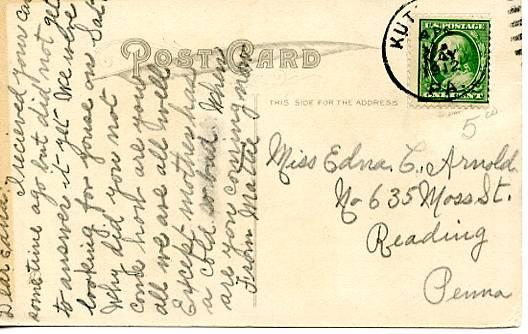 Dear Edna:
I recieved your Card
sometime ago but did not get
to answere it yet. We were
looking for youse on Sat.
Why did you not
come how are you
all we are all well
Except mother has
a cold so bad. When
are you coming now
From Mattie
POST CARD
THIS SIDE FOR THE ADDRESS
KUT
PA.
U.S. POSTAGE
5 00
Miss Edna. C. Arnold.
No 635 Moss St.
Reading
Penna